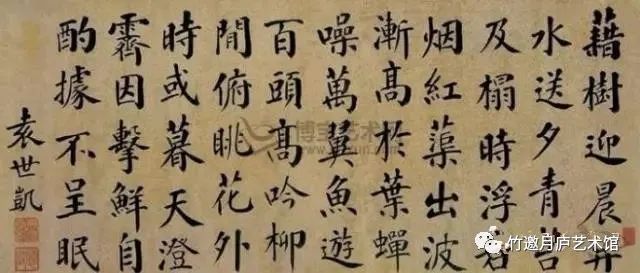 藉樹迎晨弄
水送夕青苔
及榻時浮茗
烟紅蕖出波
漸高於葉蟬
噪萬翼魚遊
百頭高吟柳
閒俯眺花外
時或暮天澄
霽因擊鮮自
酌據不呈眠
袁世凱
博宝艺术网
竹邀月庐艺术馆